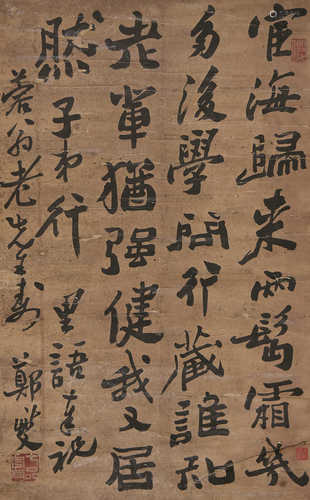 宦海歸來两鬓霜幾
多後學問行藏誰知
老輩猶强健我又居
然子弟行 里語奉祝
蓉翁老先生壽 鄭燮